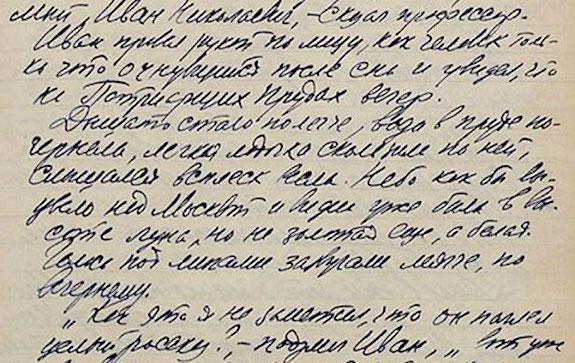 мый Иван Николаевич, – сказал профессор.
Иван провел рукой по лицу, как человек толь-
ко что очнувшийся после сна и увидел, что
на Патриарших Прудах вечер.
Дышать стало полегче, вода в пруде по-
чернела, легкая лодочка скользила по ней,
слышался всплеск весла. Небо как бы вы-
цвело над Москвой и видна уже была в вы-
соте луна, но не золотая еще, а белая.
Голоса под липами звучали мягче, по
вечернему.
„Как это я не заметил, что он наплел
целый рассказ?, – подумал Иван, „ Вот уже